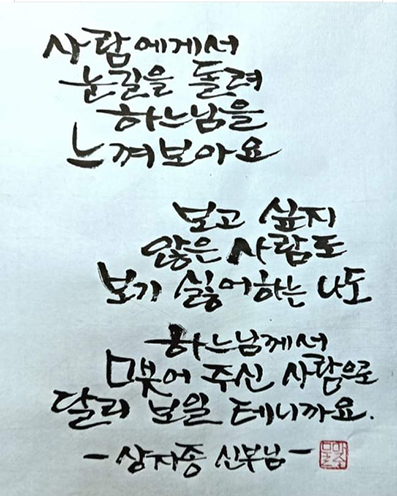 사람에게서
눈길을 돌려
하느님을
느껴보아요
보고 싶지
않은 사람도
보기 싫어하는 나도
하느님께서
빚어 주신 사람으로
달리 보일 테니까요.
- 상지종 신부님 -